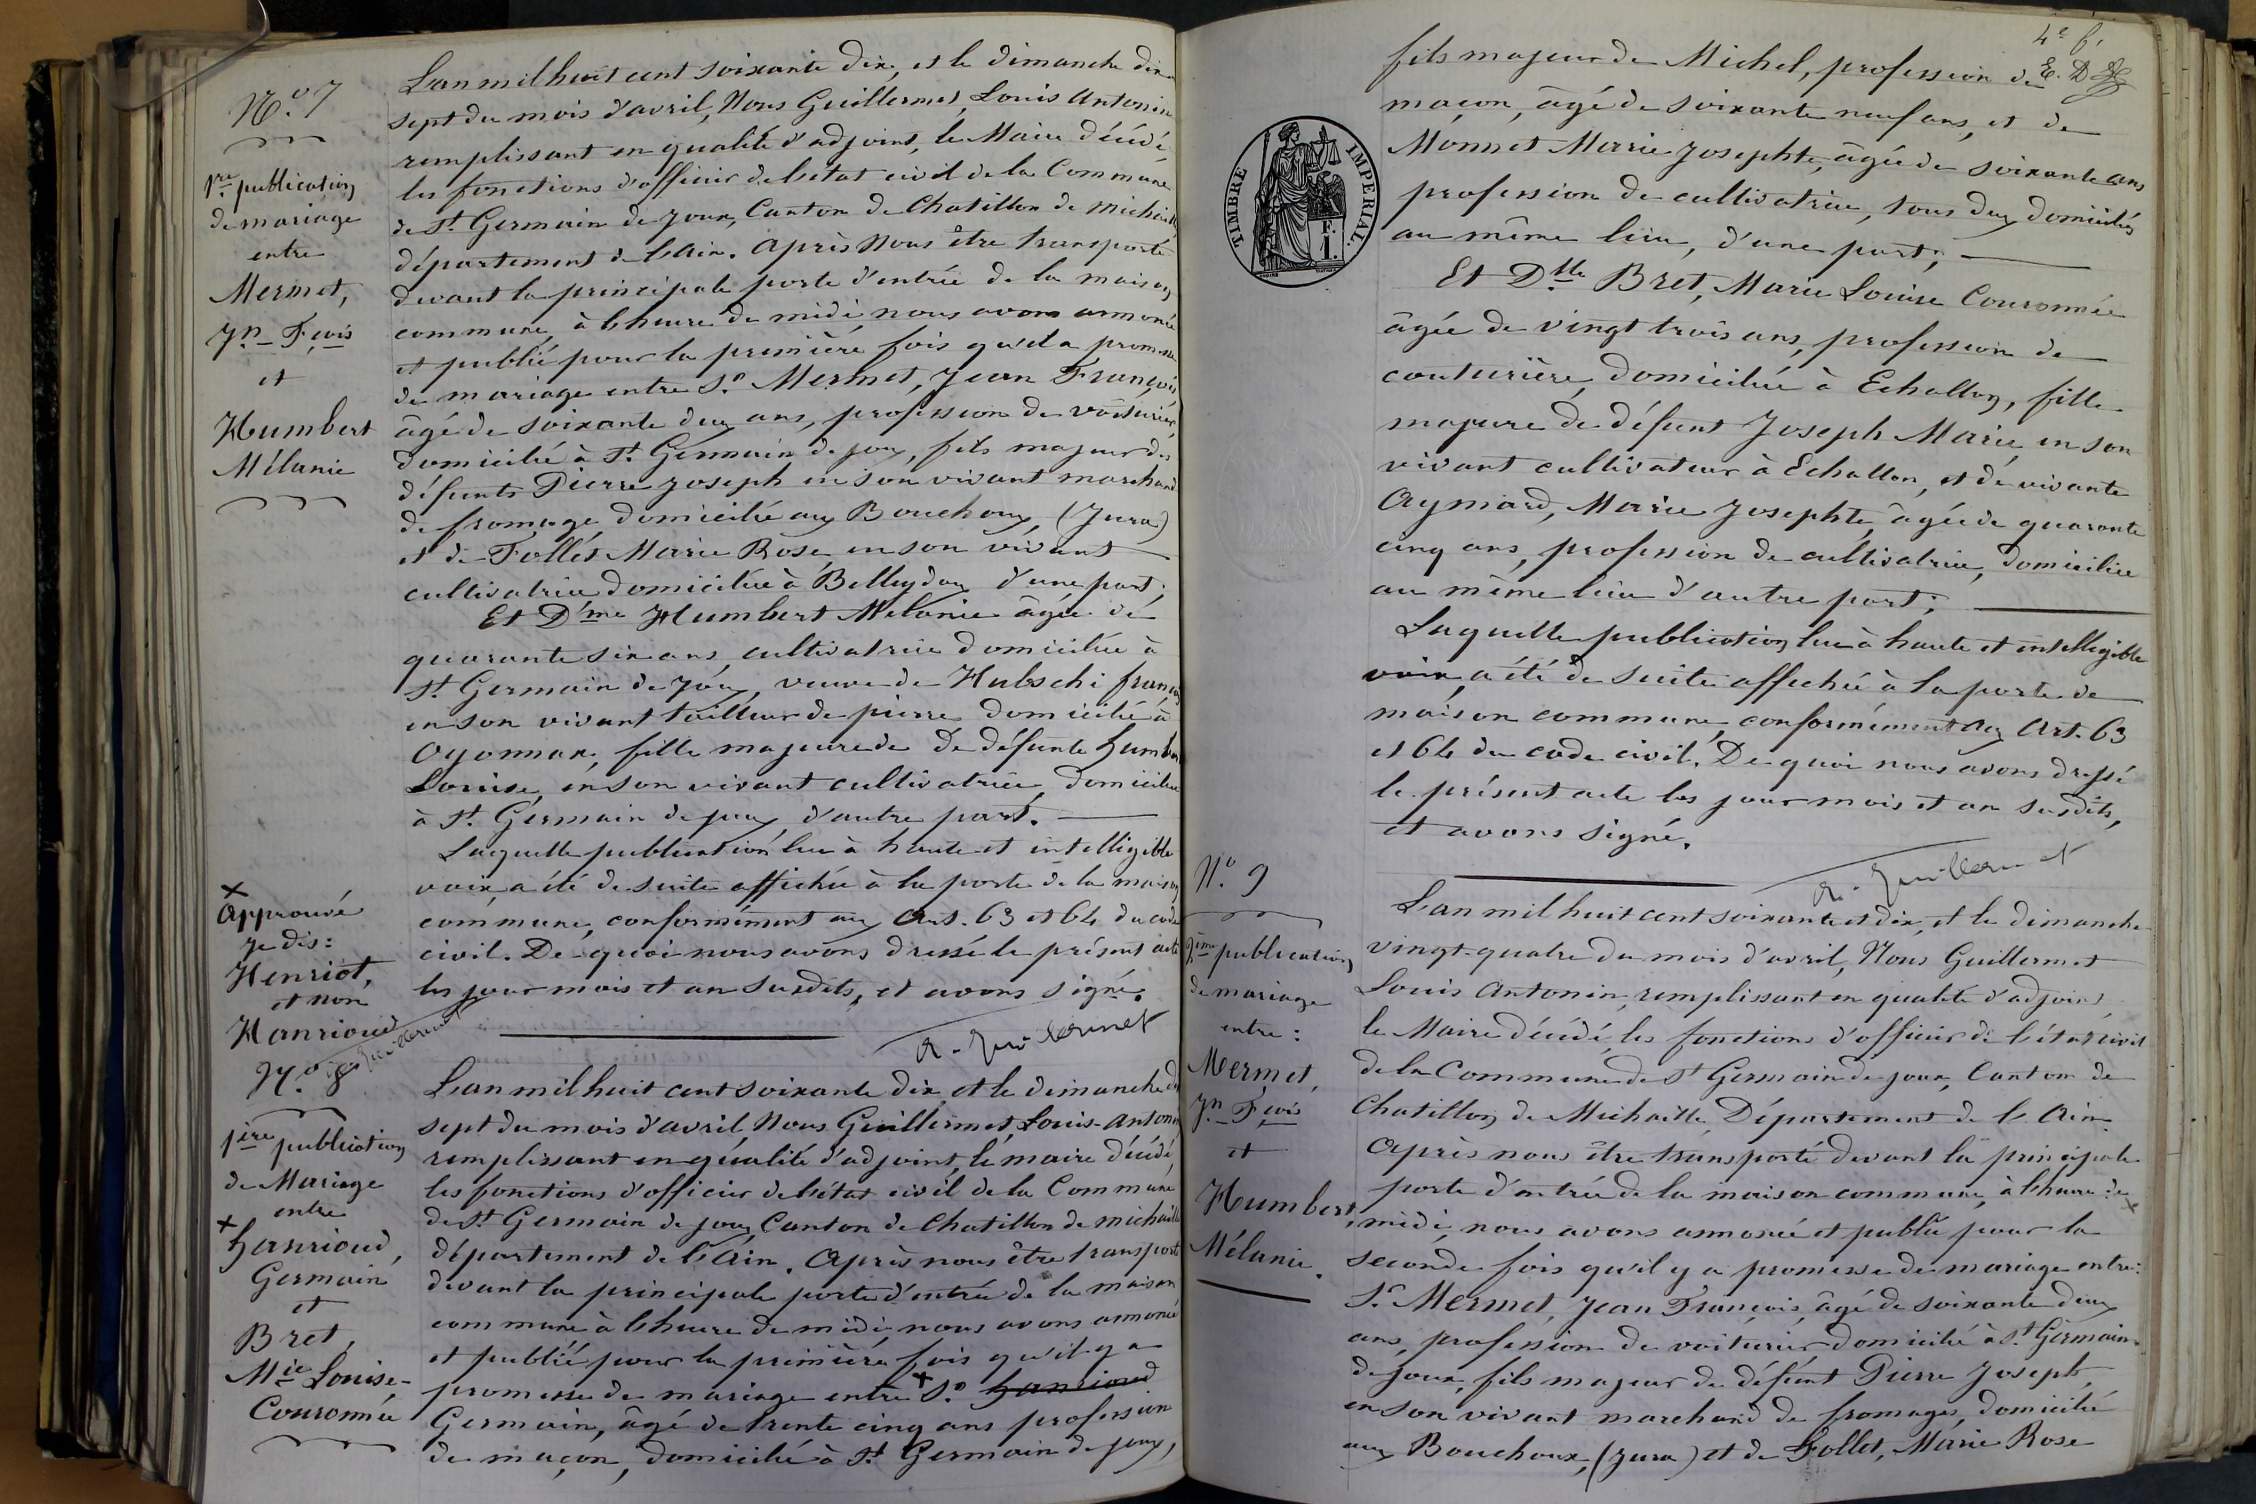 N.º 7
1re publication
de mariage
entre
Mermet,
Jn Fçois
et
Humbert
Mélanie
L'an mil huit cent soixante dix, et le dimanche dix
sept du mois d'avril, Nous Guillermet, Louis Antonin
remplissant en qualité d'adjoint, le Maire décédé,
les fonctions d'officier de l'état civil de la Commune
de St Germain de Joux, Canton de Chatillon de Michaille
département de l'Ain. Après Nous être transporté
devant la principale porte d'entrée de la maison
commune, à l'heure de midi nous avons annoncé
et publié pour la première fois qu'il a promesse
de mariage entre Sr Mermet, Jean François
âgé de soixante deux ans, profession de voiturier,
domicilié à St Germain de joux, fils majeur des
défunts Pierre Joseph en son vivant marchand
de fromage domicilié aux Bouchoux, (Jura)
et de Follet Marie Rose en son vivant
cultivatrice domiciliée à Belleydoux d'une part;
Et Dme Humbert Mélanie âgée de
quarante six ans, cultivatrice domiciliée à
St Germain de Joux, veuve de Hubschi françois
en son vivant tailleur de pierre domicilié à
Oyonnax, fille majeure de De défunte humbert
Louise, en son vivant cultivatrice, domiciliée
à St Germain de joux d'autre part.
Laquelle publication lue à haute et intelligible
voix, a été de suite affichée à la porte de la maison
commune, conformément aux Art. 63 et 64 du code
civil. De quoi nous avons dressé le présent acte
les jour mois et an susdits, et avons signé.
A. Guillermet
x
Approuvé
Je dis:
Henriot,
et non
Hanrioud
A. Guillermet
N.º 8
1ère publication
de Mariage
entre
x hanrioud,
Germain
et
Bret,
Mie Louise-
Couronnée
L'an mil huit cent soixante dix, et le dimanche dix
sept du mois d'avril, Nous Guillermet, Louis-Antonin
remplissant en qualité d'adjoint, le maire décédé,
les fonctions d'officier de l'état civil de la Commune
de St Germain de joux, Canton de Chatillon de michaille
département de l'Ain. Après nous être transporté
devant la principale porte d'entrée de la maison
commune à l'heure de midi, nous avons annoncé
et publié pour la première fois qu'il y a
promesse de mariage entre x Sr hanrioud
Germain, âgé de trente cinq ans profession
de maçon, domicilié à St Germain de joux,
4e f.
E. D
TIMBRE IMPERIAL.
F.
1.
fils majeur de Michel, profession de
maçon, âgé de soixante neuf ans, et de
Monnet Marie Josephte, âgée de soixante ans
profession de cultivatrice, tous deux domiciliés
au même lieu, d'une part;
Et Dlle Bret, Marie Louise Couronnée
âgée de vingt trois ans, profession de
couturière, domiciliée à Echallon, fille
majeure de défunt Joseph Marie, en son
vivant cultivateur à Echallon, et de vivante
Aymard, Marie Josephte, âgée de quarante
cinq ans, profession de cultivatrice, domiciliée
au même lieu d'autre part;
Laquelle publication lue à haute et intelligible
voix, a été de suite affichée à la porte de
maison commune, conformément aux Art. 63
et 64 du code civil. De quoi nous avons dressé
le présent acte les jour mois et an susdits,
et avons signé.
A. Guillermet
N.º 9
2ème publication
de mariage
entre:
Mermet,
Jn Fçois
et
Humbert,
Mélanie.
L'an mil huit cent soixante et dix, et le dimanche
vingt-quatre du mois d'avril, Nous Guillermet
Louis Antonin, remplissant en qualité d'adjoint,
le Maire décédé, les fonctions d'officier de l'état civil
de la Commune de St Germain de joux, Canton de
Chatillon de Michaille, Département de l'Ain.
Après nous être transporté devant la principale
porte d'entrée de la maison commune, à l'heure de x
midi, nous avons annoncé et publié pour la
seconde fois qu'il y a promesse de mariage entre:
Sr Mermet, Jean François, âgé de soixante deux
ans, profession de voiturier domicilié à St Germain
de joux, fils majeur de défunt Pierre Joseph,
en son vivant marchand de fromages, domicilié
aux Bouchoux, (Jura) et de Follet, Marie Rose